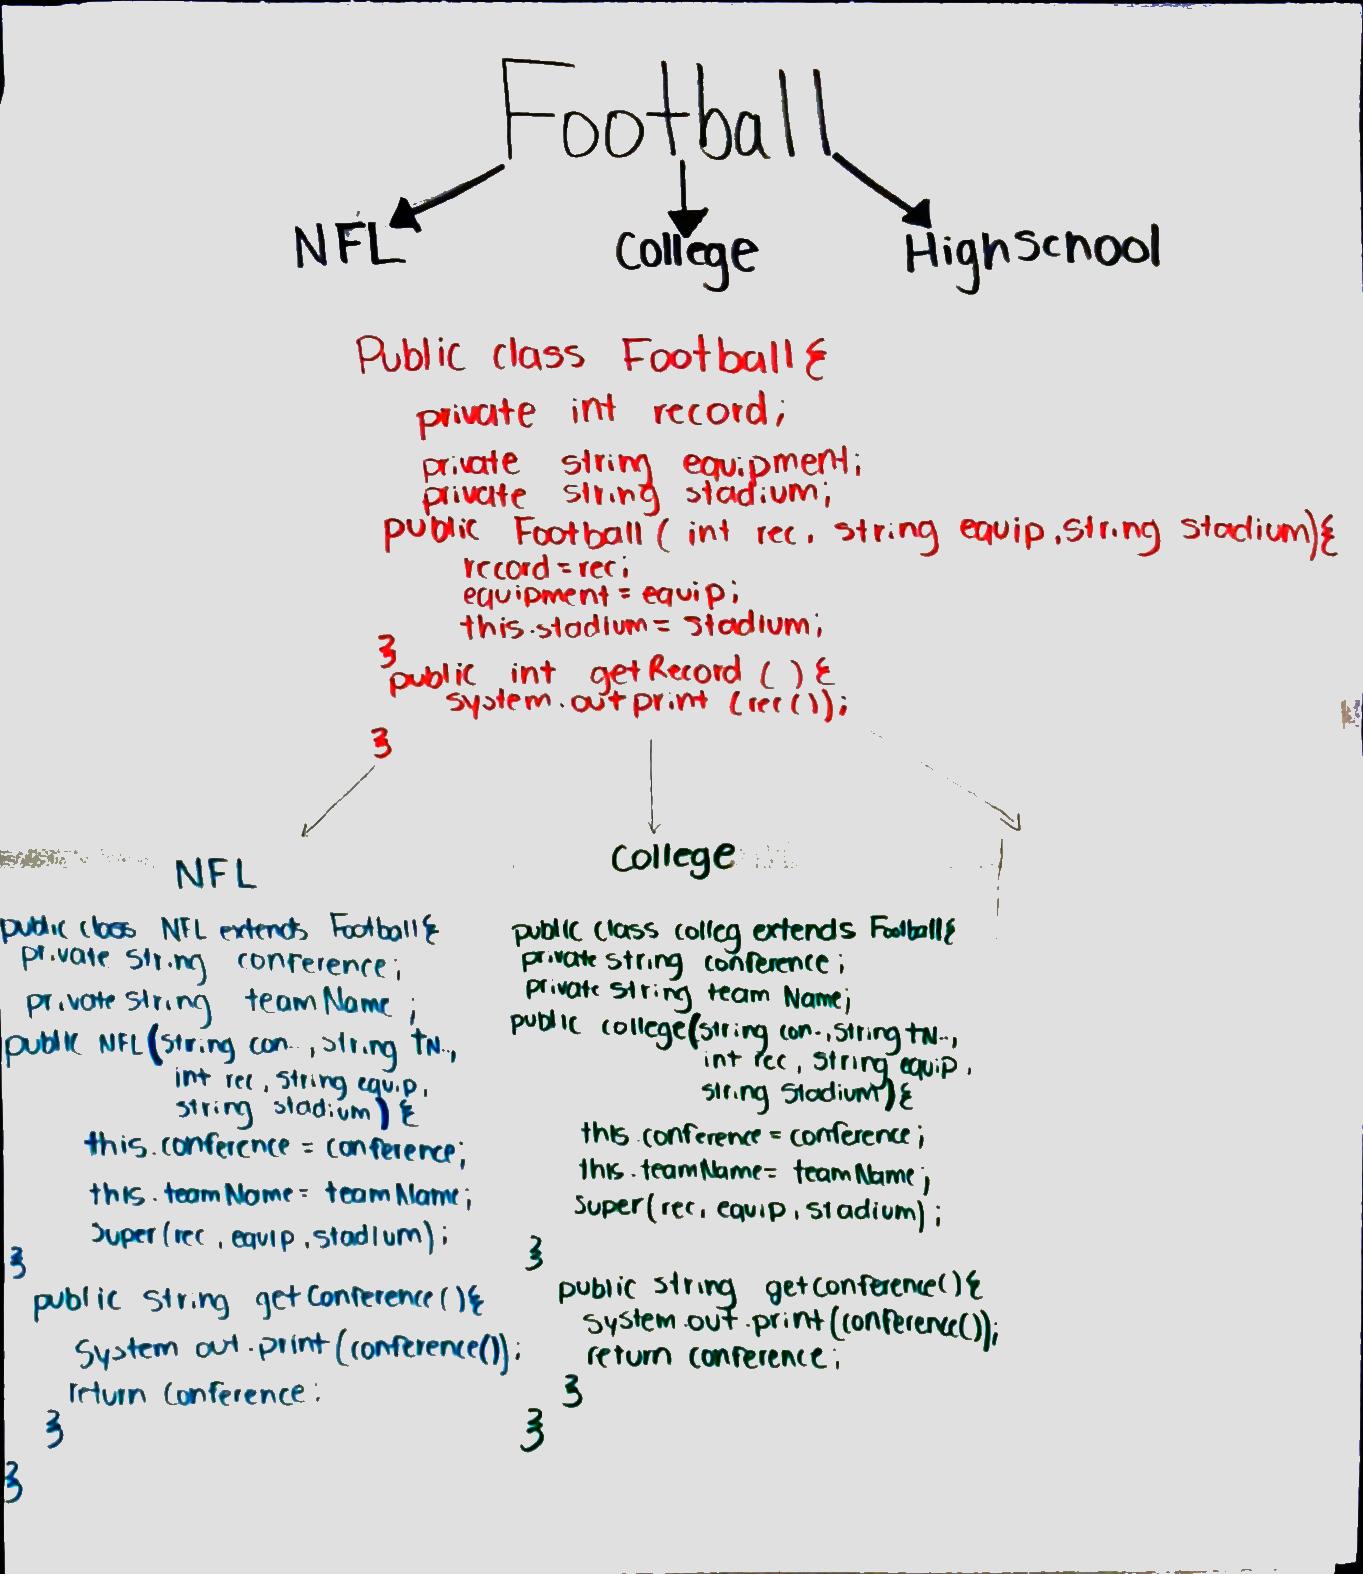 Football
NFL College Highschool
Public class Football{
private int record;
private string equipment;
private string stadium;
public Football ( int rec, string equip, string stadium){
record = rec;
equipment = equip;
this.stadium = stadium;
}
public int getRecord ( ) {
system.out print (rec());
}
NFL
public class NFL extends Football{
private string conference;
private string teamName ;
public NFL(string con.. , string tN..,
int rec, string equip,
string stadium) {
this.conference = conference;
this.teamName = teamName;
super(rec, equip, stadium);
}
public string getConference(){
System out.print(conference());
return conference;
}
}
College
public class colleg extends Football{
private string conference;
private string team Name;
public college(string con.., string tN..,
int rec, string equip,
string stadium) {
this.conference = conference;
this.teamName = teamName;
super(rec, equip, stadium);
}
public string getConference(){
system.out.print(conference());
return conference;
}
}